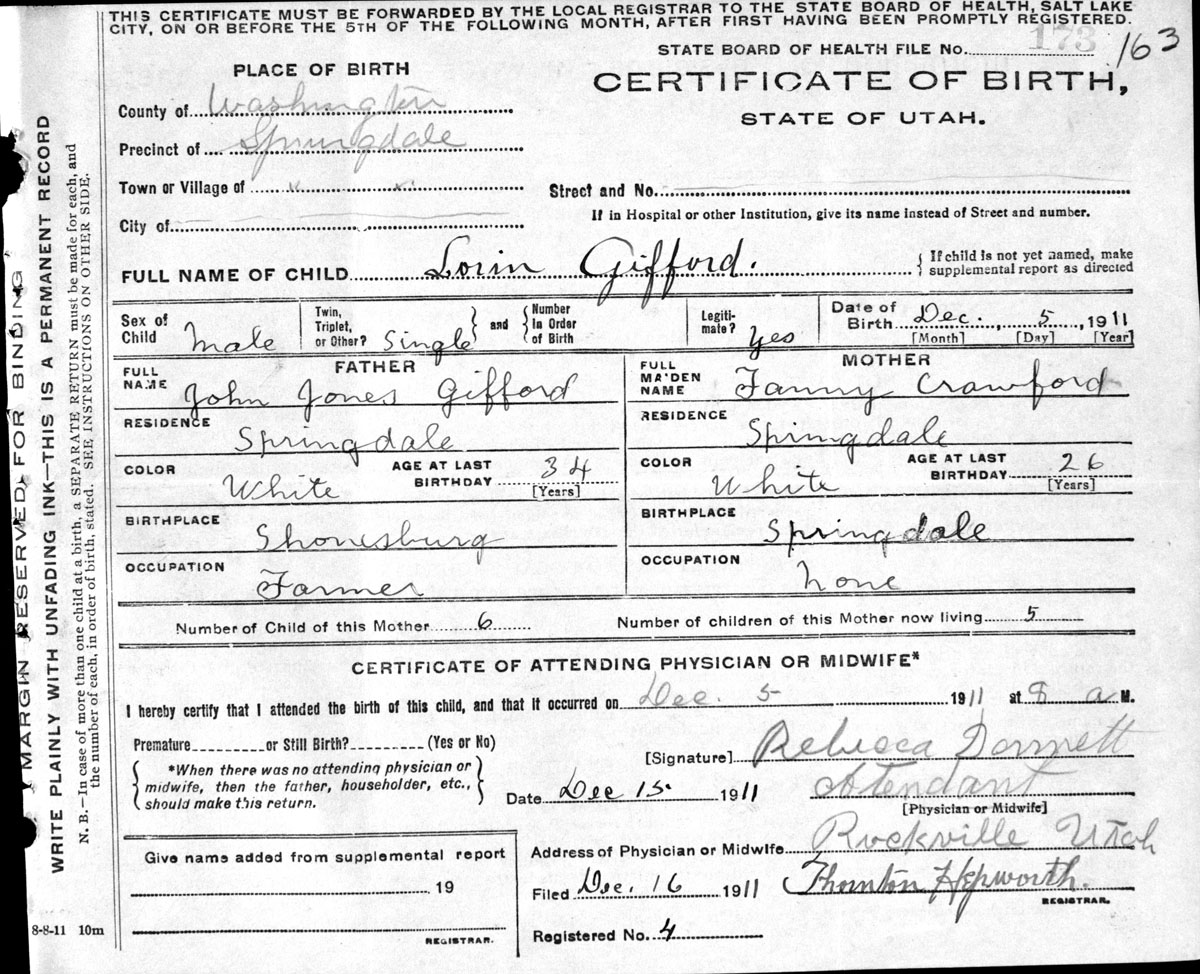 THIS CERTIFICATE MUST BE FORWARDED BY THE LOCAL REGISTRAR TO THE STATE BOARD OF HEALTH, SALT LAKE
CITY, ON OR BEFORE THE 5TH OF THE FOLLOWING MONTH, AFTER FIRST HAVING BEEN PROMPTLY REGISTERED.
STATE BOARD OF HEALTH FILE No. 173 163
PLACE OF BIRTH
CERTIFICATE OF BIRTH,
STATE OF UTAH.
County of Washington
Precinct of Springdale
Town or Village of " "
Street and No.
City of
If in Hospital or other Institution, give its name instead of Street and number.
FULL NAME OF CHILD Lorin Gifford. { If child is not yet named, make
supplemental report as directed
Sex of Child Male
Twin, Triplet, or Other? Single } and { Number In Order of Birth
Legiti-mate? Yes
Date of Birth Dec. 5, 1911
[Month] [Day] [Year]
FATHER
FULL NAME John Jones Gifford
RESIDENCE Springdale
COLOR White AGE AT LAST BIRTHDAY 34
[Years]
BIRTHPLACE Shonesburg
OCCUPATION Farmer
MOTHER
FULL MAIDEN NAME Fanny Crawford
RESIDENCE Springdale
COLOR White AGE AT LAST BIRTHDAY 26
[Years]
BIRTHPLACE Springdale
OCCUPATION None
Number of Child of this Mother 6 Number of children of this Mother now living 5
CERTIFICATE OF ATTENDING PHYSICIAN OR MIDWIFE*
I hereby certify that I attended the birth of this child, and that it occurred on Dec. 5 1911 at 8 a M.
Premature or Still Birth? (Yes or No)
{ *When there was no attending physician or
midwife, then the father, householder, etc.,
should make this return. }
[Signature] Rebecca Dennett
Atendant
Date Dec 15. 1911
[Physician or Midwife]
Give name added from supplemental report
19
REGISTRAR.
Address of Physician or Midwife Rockville Utah
Filed Dec. 16 1911 Thornton Hepworth.
REGISTRAR.
Registered No. 4
8-8-11 10m
MARGIN RESERVED FOR BINDING
WRITE PLAINLY WITH UNFADING INK—THIS IS A PERMANENT RECORD
N. B.—In case of more than one child at a birth, a SEPARATE RETURN must be made for each, and
the number of each, in order of birth, stated. SEE INSTRUCTIONS ON OTHER SIDE.